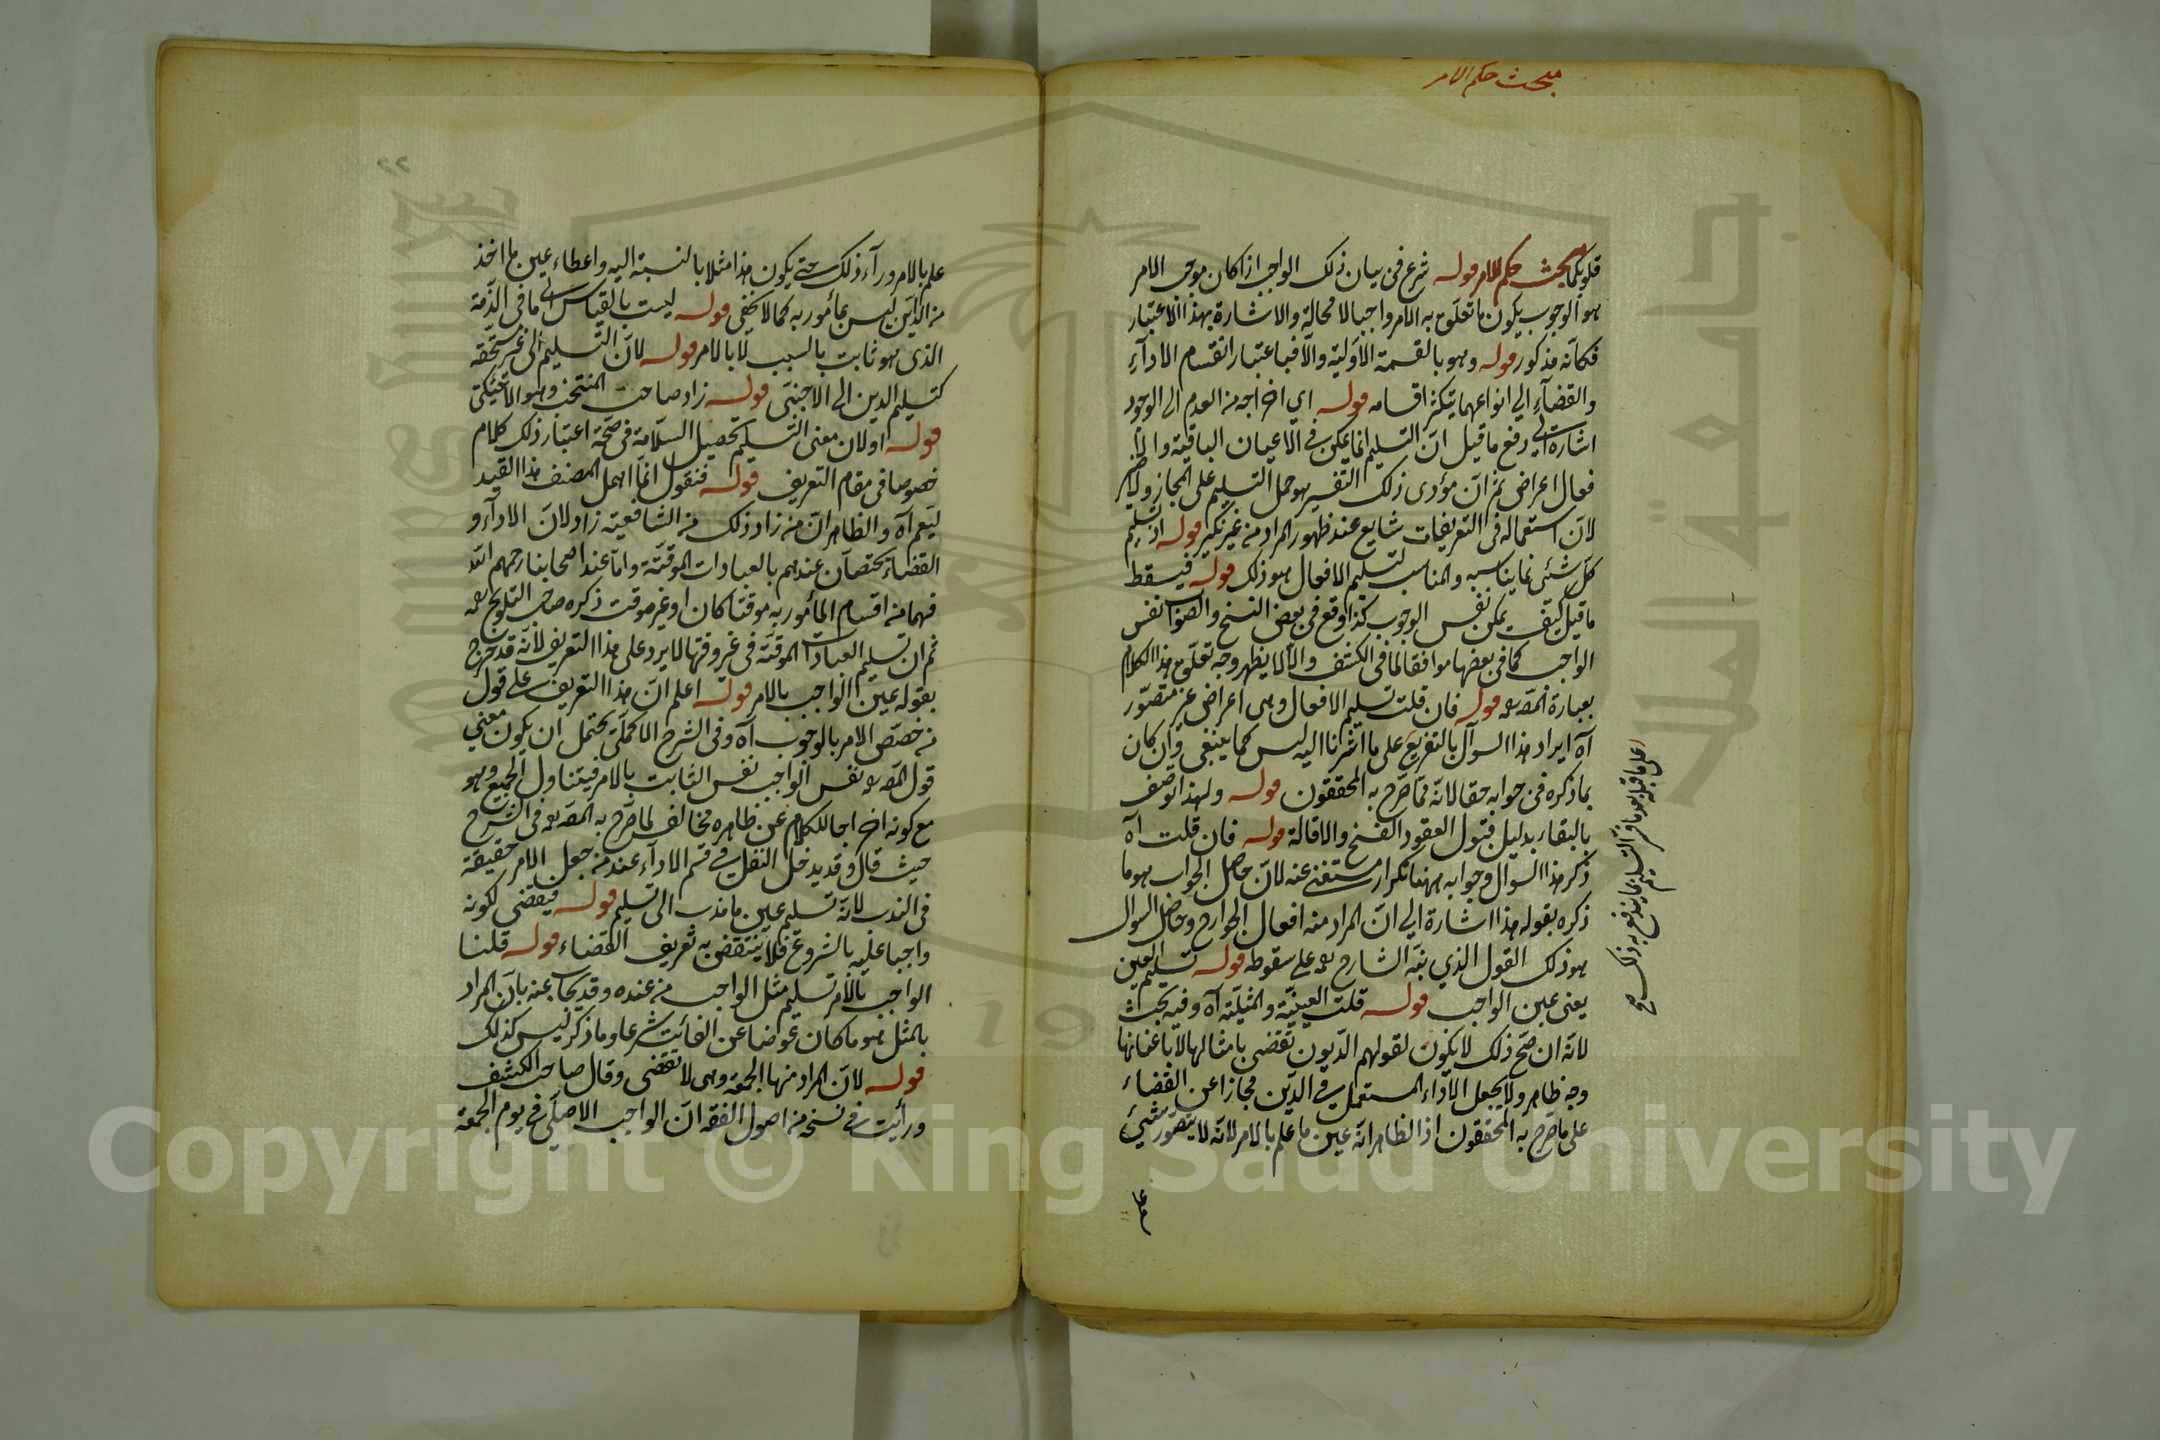 مبحث حكم الامر
قلوبكما مبحث حكم الامر قوله شرع فى بيان ذلك الواجب اذا كان موجب الامر
هو الوجوب يكون ما تعلق به الامر واجبا لا محالة والاشارة بهذا الاعتبار
فكانه مذكور قوله وهو بالقسمة الاولية والا فباعتبار انقسام الاداء
والقضاء الى انواعهما يتكثر اقسامه قوله اى اخراجه من العدم الى الوجود
اشارة الى دفع ما قيل ان التسليم انما يمكن فى الاعيان الباقية
فعال اعراض ثم ان مؤدى ذلك التفسير هو حمل التسليم على المجاز ولا ضير
لان استعماله فى التعريفات شايع عند ظهور المراد من غير نكير قوله اذ تسليم
كل شئ بما يناسبه والمناسب لتسليم الافعال هو ذلك قوله فيسقط
ما قيل كيف يمكن نفس الوجوب كذا وقع فى بعض النسخ والصواب نفس
الواجب كما فى بعضها موافقا لما فى الكشف والا لا يظهر وجه تعلق هذا الكلام
بعبارة المص رحمه قوله فان قلت تسليم الافعال وهى اعراض غير متصور
آه ايراد هذا السوال بالتفريع على ما اشرنا اليه ليس كما ينبغى وان كان
بما ذكره فى جوابه حقا لانه مما صرح به المحققون قوله ولهذا توصف
بالبقاء بدليل قبول العقود الفسخ والاقالة قوله فان قلت آه
ذكر هذا السوال وجوابه ههنا تكرار مستغنى عنه لان حاصل الجواب هو ما
ذكره بقوله هذا اشارة الى ان المراد منه افعال الجوارح وحاصل السوال
هو ذلك القول الذى نبه الشارح رحمه على سقوطه قوله تسليم العين
يعنى عين الواجب قوله قلت العينية والمثلية آه وفيه بحث
لانه ان صح ذلك لا يكون لقولهم الديون تقضى بامثالها لا باعيانها
وجه ظاهر ولا يجعل الاداء المستعمل فى الدين مجازا عن القضاء
على ما صرح به المحققون اذ الظاهر انه عين ما علم بالامر لانه لا يتصور شئ
علم
علم بالامر وراء ذلك حتى يكون هذا مثلا بالنسبة اليه واعطاء عين ما اخذ
من الدين ليس بمأمور به كما لا يخفى قوله ليست بالقياس الى ما فى الذمة
الذى هو ثابت بالسبب لا بالامر قوله لان التسليم الى غير مستحقه
كتسليم الدين الى الاجنبى قوله زاد صاحب المنتخب وهو الاخسيكتى
قوله او لان معنى التسليم تحصيل السلامة فى صحة اعتبار ذلك كلام
خصوصا فى مقام التعريف قوله فنقول انما اهمل المصنف هذا القيد
ليعم آه والظاهر ان من زاد ذلك من الشافعية زاد لان الاداء و
القضاء يختصان عندهم بالعبادات الموقتة واما عند اصحابنا رحمهم الله
فهما من اقسام المأمور به موقتا كان او غير موقت ذكره صاحب التلويح رحمه
ثم ان تسليم العبادات الموقتة فى غير وقتها لا يرد على هذا التعريف لانه قد خرج
بقوله عين الواجب بالامر قوله اعلم ان هذا التعريف على قول
من خصص الامر بالوجوب آه وفى الشرح الاكملى يحتمل ان يكون معنى
قول المص رحمه نفس الواجب نفس الثابت بالامر فيتناول الجميع وهو
مع كونه اخراجا للكلام عن ظاهره مخالف لما صرح به المص رحمه فى الشرح
حيث قال وقد يدخل النفل فى قسم الاداء عند من جعل الامر حقيقة
فى الندب لانه تسليم عين ما ندب الى تسليم قوله فيقضى لكونه
واجبا عليه بالشروع فلا ينتقض به تعريف القضاء قوله قلنا
الواجب بالامر تسليم مثل الواجب من عنده وقد يجاب عنه بان المراد
بالمثل هو ما كان عوضا عن الفائت شرعا وما ذكر ليس كذلك
قوله لان المراد منها الجمعة وهى لا تقضى وقال صاحب الكشف
ورأيت فى نسخة من اصول الفقه ان الواجب الاصلى فى يوم الجمعة
Copyright © King Saud University